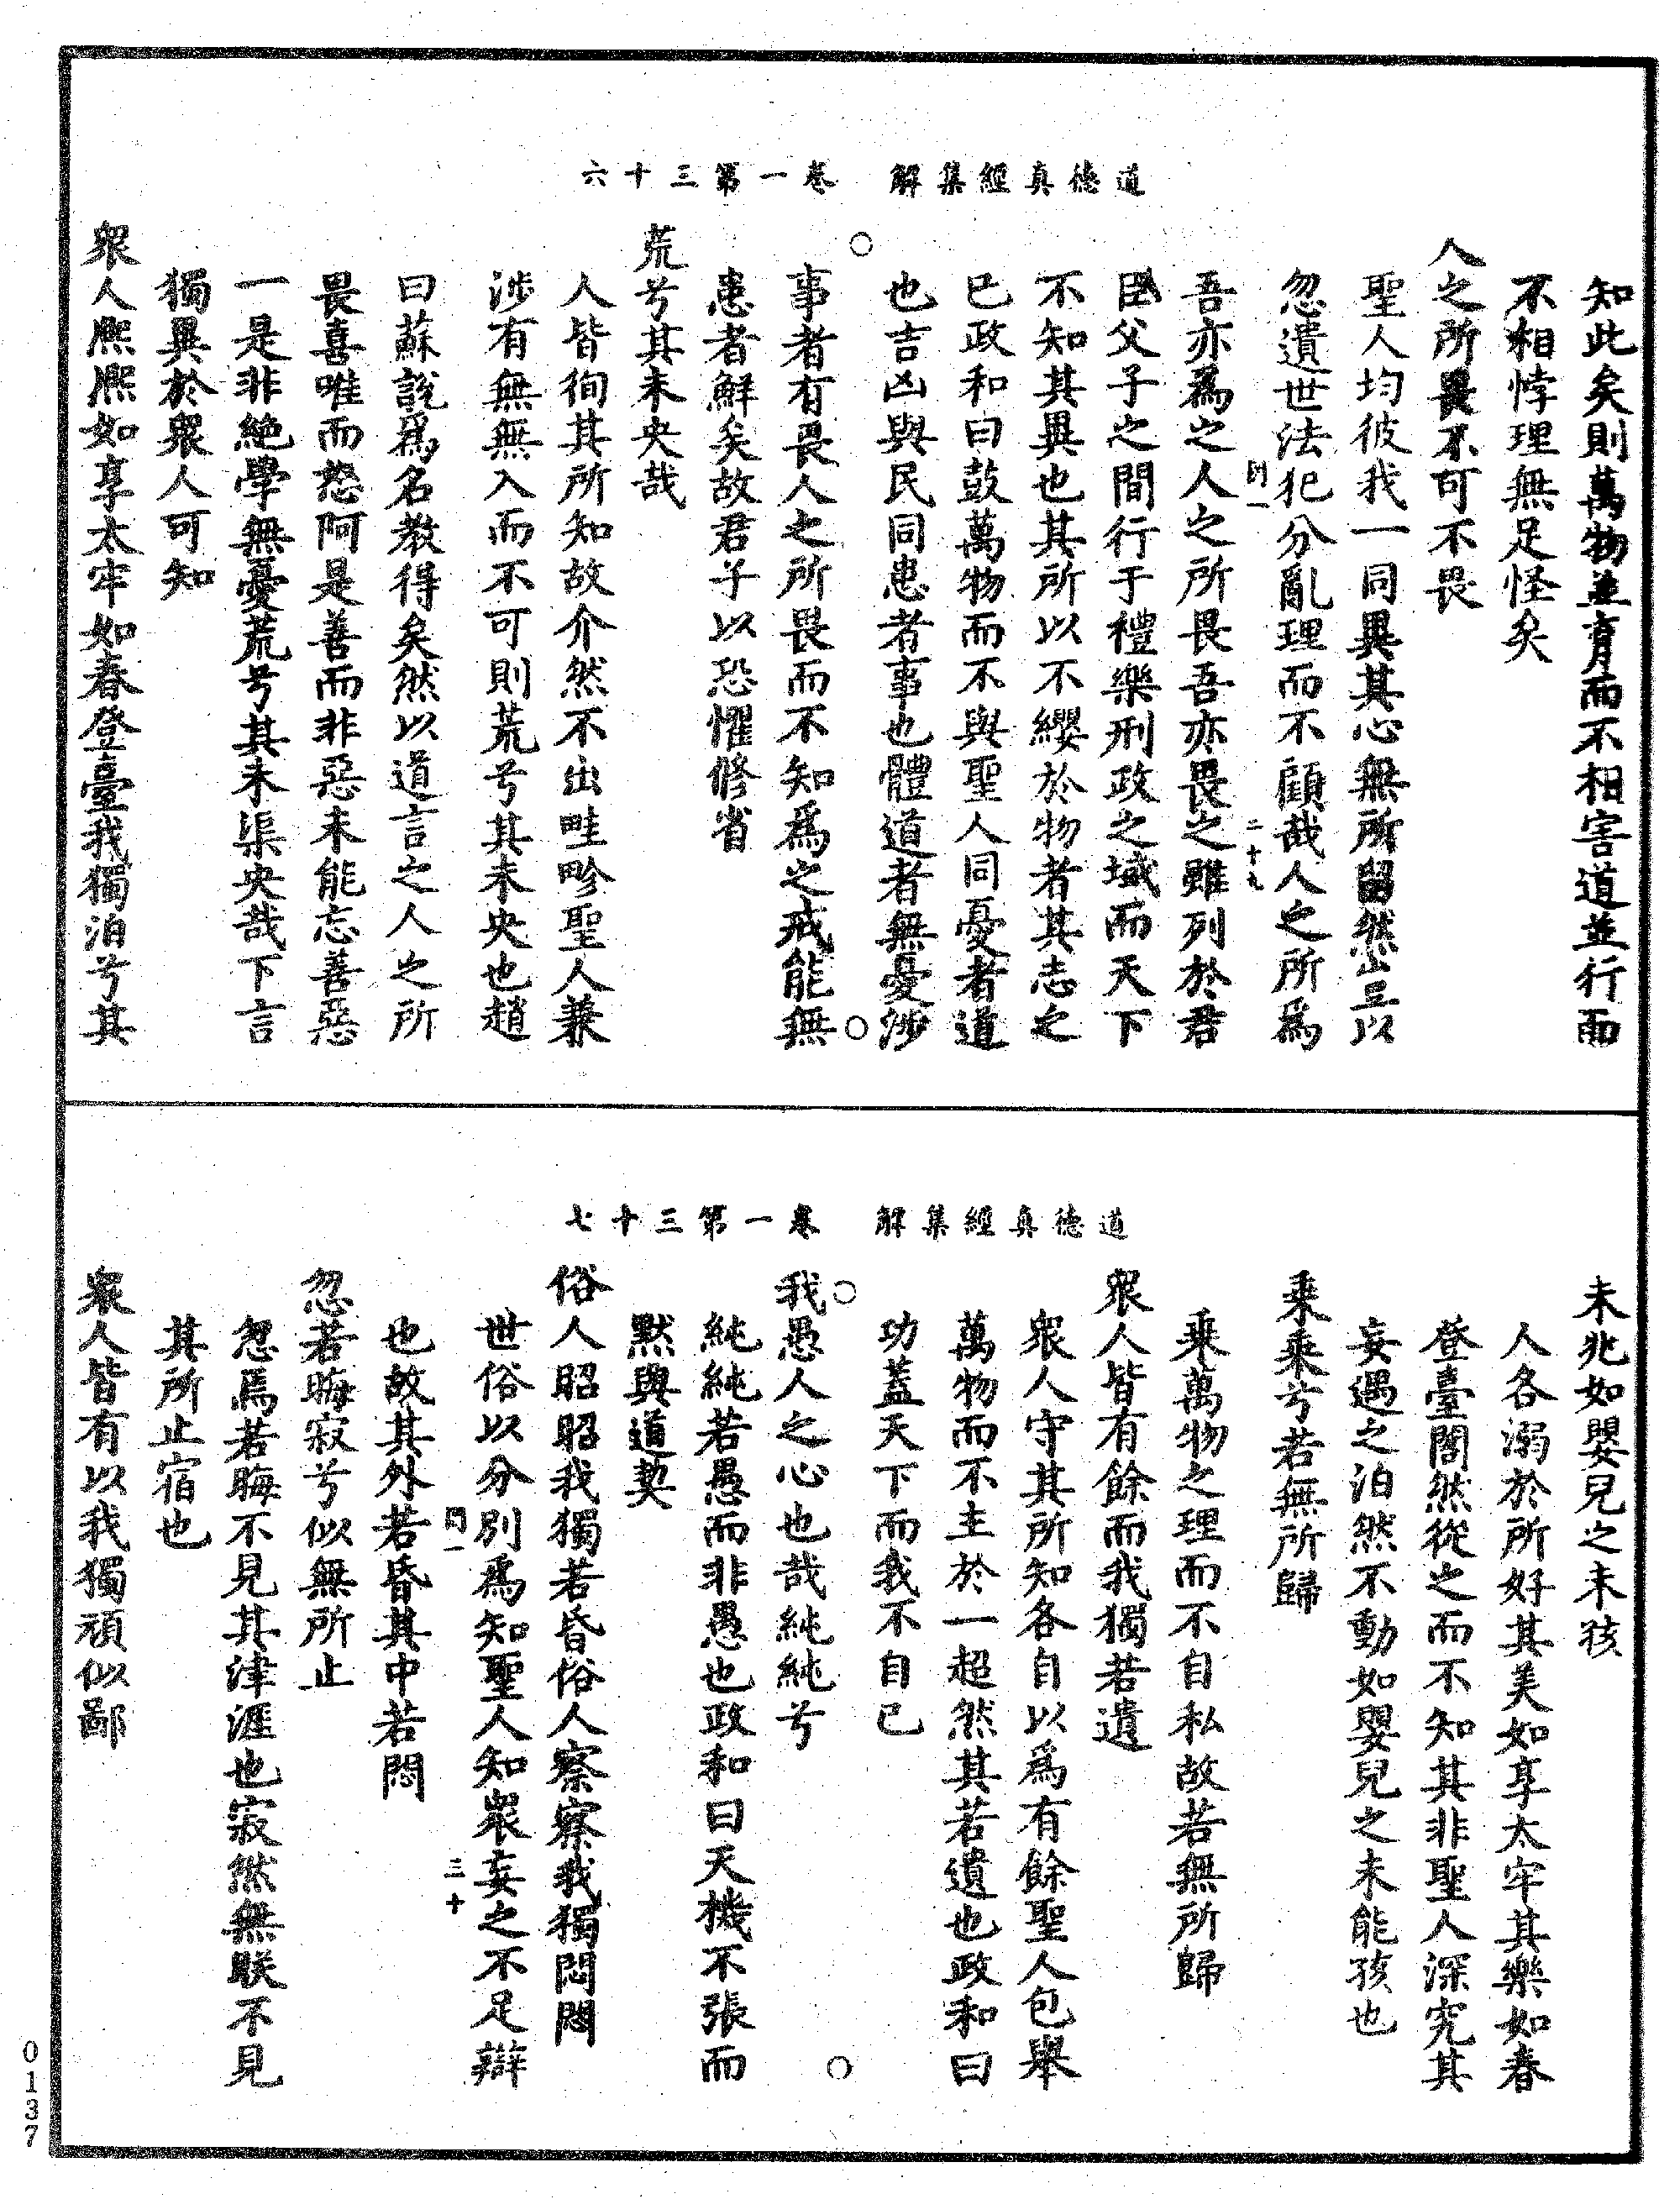 道德真經集解　卷一第三十六
知此矣則萬物並育而不相害道並行而
不相悖理無足怪矣
人之所畏不可不畏
聖人均彼我一同異其心無所留然豈以
忽遺世法犯分亂理而不顧哉人之所爲
吾亦爲之人之所畏吾亦畏之雖列於君
臣父子之間行于禮樂刑政之域而天下
不知其異也其所以不纓於物者其志之
已政和曰鼓萬物而不與聖人同憂者道
也吉凶與民同患者事也體道者無憂涉
事者有畏人之所畏而不知爲之戒能無
患者鮮矣故君子以恐懼脩省
荒兮其未央哉
人皆徇其所知故介然不出畦畛聖人兼
涉有無無入而不可則荒兮其未央也趙
曰蘇說爲名教得矣然以道言之人之所
畏喜唯而怒阿是善而非惡未能忘善惡
一是非絶學無憂荒兮其未渠央哉下言
獨異於衆人可知
衆人熈熈如享太牢如春登臺我獨泊兮其
道德真經集解　卷一第三十七
未兆如嬰兒之未孩
人各溺於所好其美如享太牢其樂如春
登臺闇然從之而不知其非聖人深究其
妄遇之泊然不動如嬰兒之未能孩也
乘乘兮若無所歸
乘萬物之理而不自私故若無所歸
衆人皆有餘而我獨若遺
衆人守其所知各自以爲有餘聖人包舉
萬物而不主於一超然其若遺也政和曰
功蓋天下而我不自已
我愚人之心也哉純純兮
純純若愚而非愚也政和曰天機不張而
默與道契
俗人昭昭我獨若昏俗人察察我獨悶悶
世俗以分別爲知聖人知衆妄之不足辯
也故其外若昏其中若悶
忽若晦寂兮似無所止
忽焉若晦不見其津涯也寂然無朕不見
其所止宿也
衆人皆有以我獨頑似鄙
二十九
三十
0137